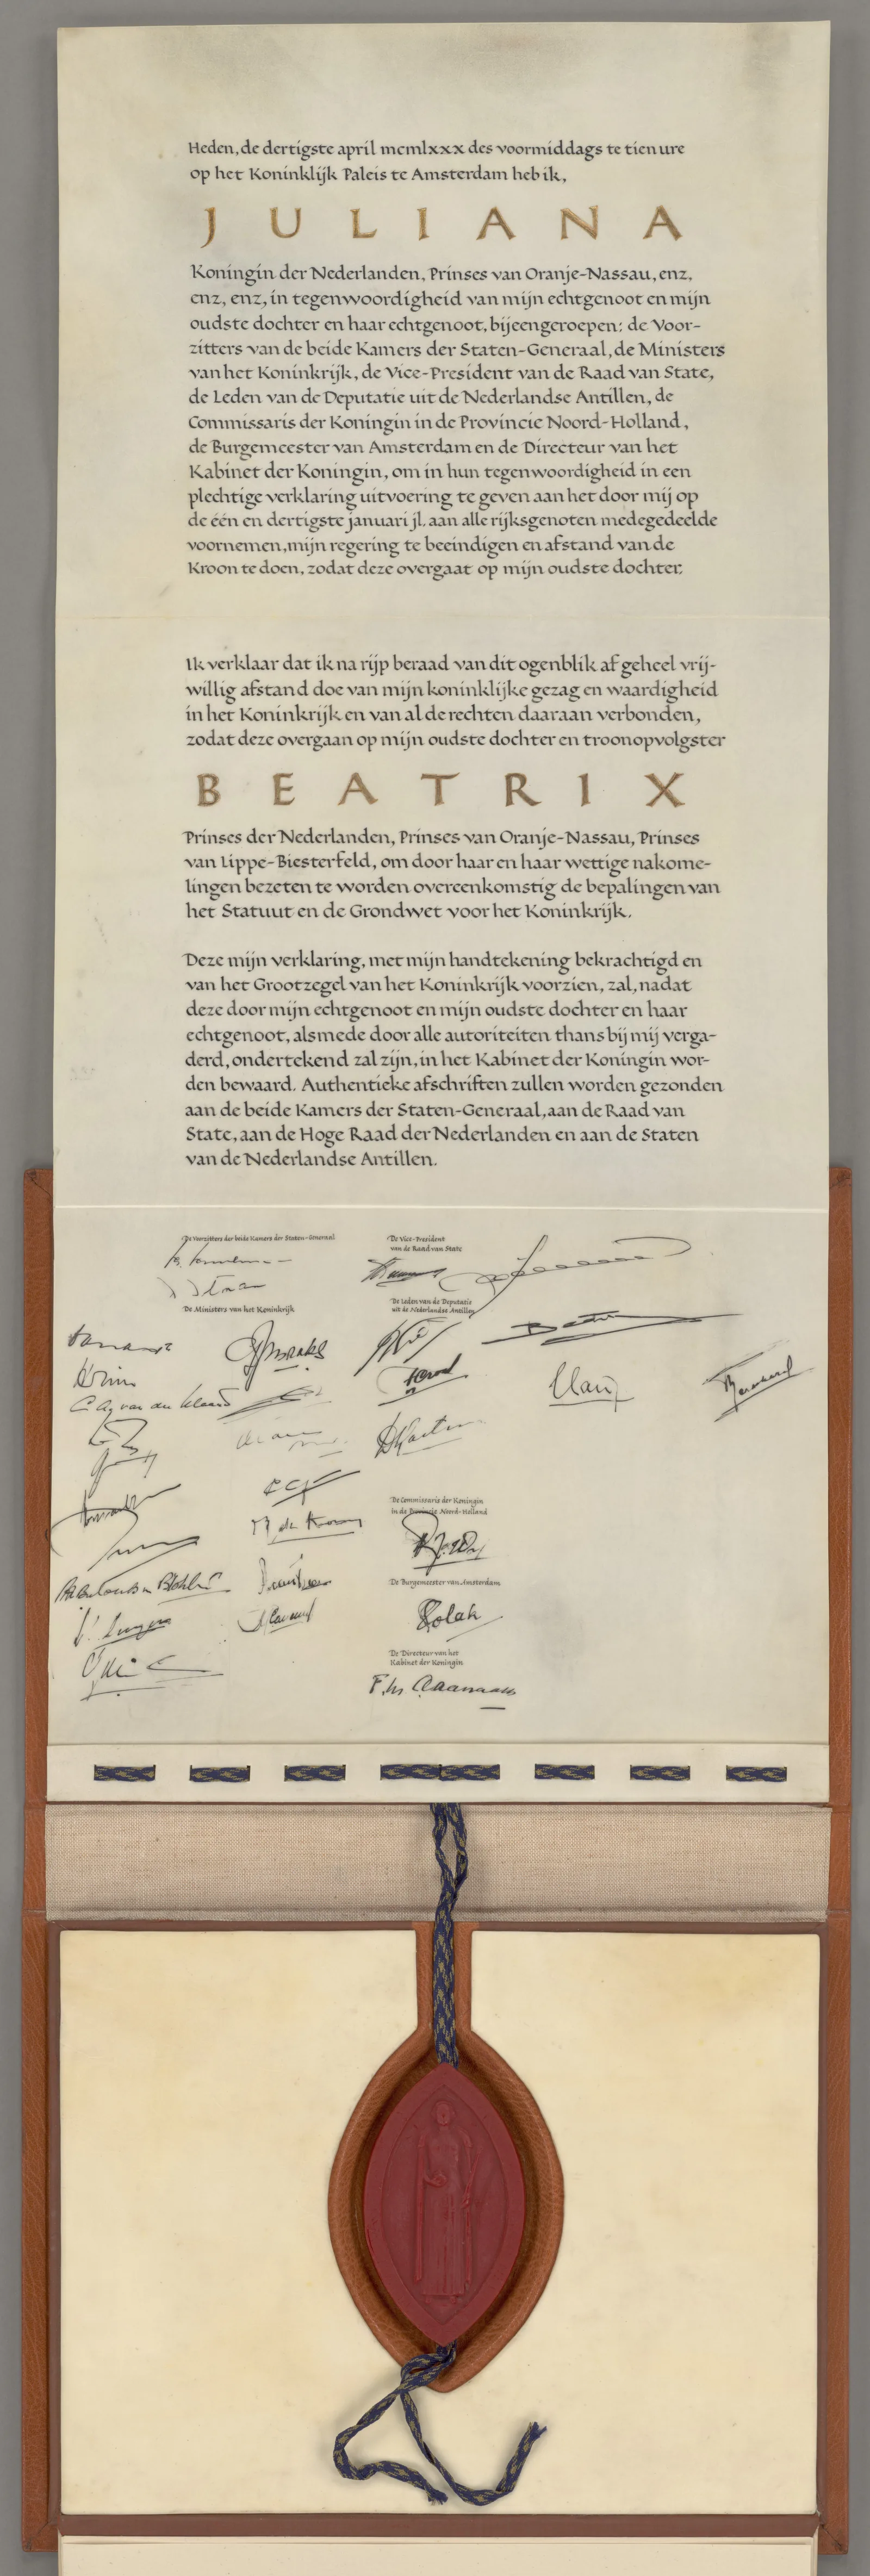 Heden, de dertigste april mcmlxxx des voormiddags te tien ure
op het Koninklijk Paleis te Amsterdam heb ik,
JULIANA
Koningin der Nederlanden, Prinses van Oranje-Nassau, enz,
enz, enz, in tegenwoordigheid van mijn echtgenoot en mijn
oudste dochter en haar echtgenoot, bijeengeroepen: de Voor-
zitters van de beide Kamers der Staten-Generaal, de Ministers
van het Koninkrijk, de Vice-President van de Raad van State,
de Leden van de Deputatie uit de Nederlandse Antillen, de
Commissaris der Koningin in de Provincie Noord-Holland,
de Burgemeester van Amsterdam en de Directeur van het
Kabinet der Koningin, om in hun tegenwoordigheid in een
plechtige verklaring uitvoering te geven aan het door mij op
de één en dertigste januari jl. aan alle rijksgenoten medegedeelde
voornemen, mijn regering te beëindigen en afstand van de
Kroon te doen, zodat deze overgaat op mijn oudste dochter.
Ik verklaar dat ik na rijp beraad van dit ogenblik af geheel vrij-
willig afstand doe van mijn koninklijke gezag en waardigheid
in het Koninkrijk en van al de rechten daaraan verbonden,
zodat deze overgaan op mijn oudste dochter en troonopvolgster
BEATRIX
Prinses der Nederlanden, Prinses van Oranje-Nassau, Prinses
van Lippe-Biesterfeld, om door haar en haar wettige nakome-
lingen bezeten te worden overeenkomstig de bepalingen van
het Statuut en de Grondwet voor het Koninkrijk.
Deze mijn verklaring, met mijn handtekening bekrachtigd en
van het Grootzegel van het Koninkrijk voorzien, zal, nadat
deze door mijn echtgenoot en mijn oudste dochter en haar
echtgenoot, alsmede door alle autoriteiten thans bij mij verga-
derd, ondertekend zal zijn, in het Kabinet der Koningin wor-
den bewaard. Authentieke afschriften zullen worden gezonden
aan de beide Kamers der Staten-Generaal, aan de Raad van
State, aan de Hoge Raad der Nederlanden en aan de Staten
van de Nederlandse Antillen.
De Voorzitters der beide Kamers der Staten-Generaal
De Ministers van het Koninkrijk
De Vice-President
van de Raad van State
De Leden van de Deputatie
uit de Nederlandse Antillen
Claus
Bernhard
De Commissaris der Koningin
in de Provincie Noord-Holland
De Burgemeester van Amsterdam
Polak
De Directeur van het
Kabinet der Koningin